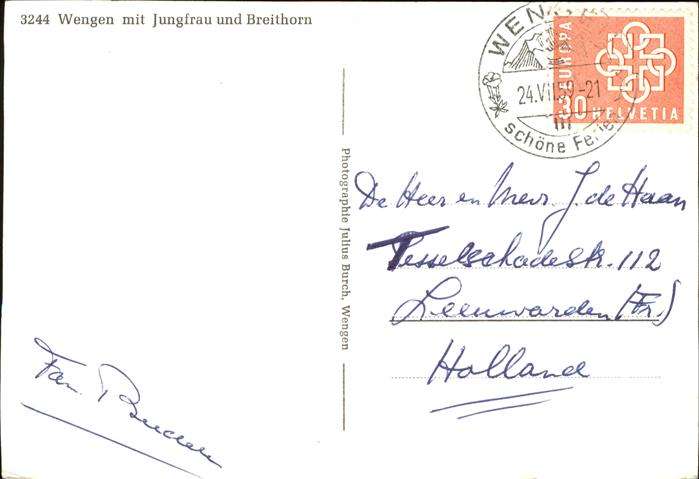 3244 Wengen mit Jungfrau und Breithorn
WEN
24.VII.59-21
schöne Ferie
EUROPA
30 HELVETIA
Photographie Julius Burch, Wengen
De Heer en Mevr. J. de Haan
Tesselschadestr. 112
Leeuwarden (Fr.)
Holland
Fam.